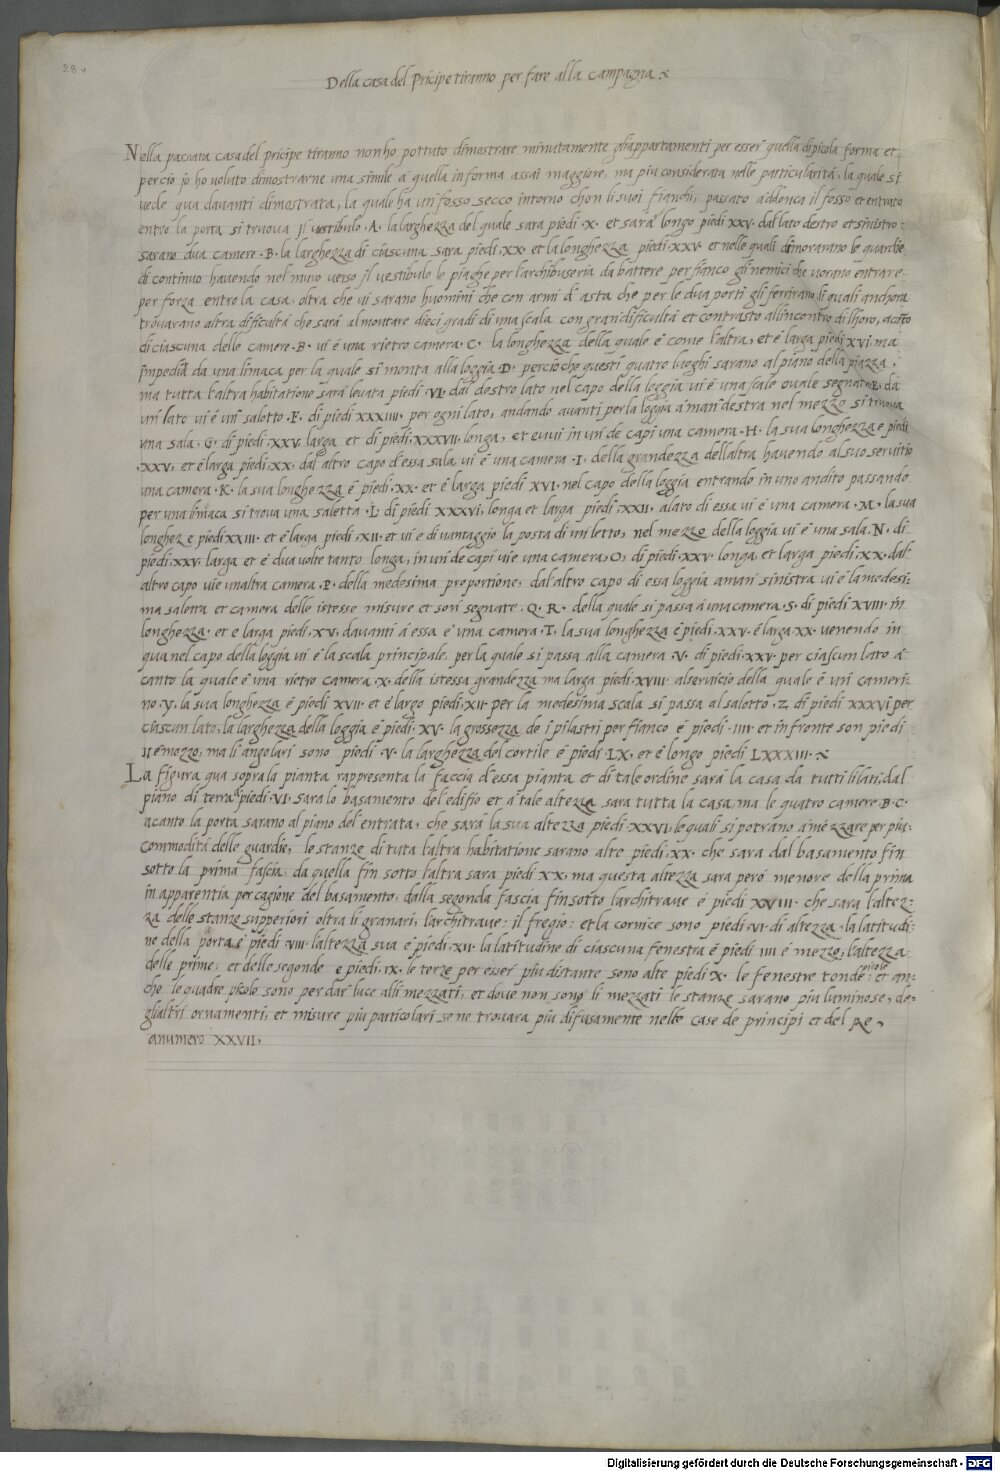 28 v
Della casa del Pricipe tiranno per fare alla Campagna x
Nella passata casa del pricipe tiranno non ho pottuto dimostrare minutamente gli appartamenti per esser quella di picola forma et
percio jo ho voluto dimostrarne una simile a quella in forma assai maggiore, ma piu considerata nelle particularita, la quale si
vede qua davanti dimostrata, la quale ha un fosso secco intorno chon li suoi fianchi, passato addonca il fosso et entrato
entro la porta si truova jl vestibulo, A, la larghezza del quale sara piedi .X. et sara longo piedi XXV. dal lato destro et sinistro
sarano dua camere .B. la larghezza di ciascuna sara piedi .XX. et la longhezza piedi .XXV. et nelle quali dimorarano le guardie
di continuo havendo nel muro verso jl vestibulo le piaghe per l'archibuseria da battere per fianco gli nemici che vorano entrare
por forza entro la casa, oltra che vi sarano huomini che con armi d'asta che per le dua porti gli ferrirano li quali anchora
trovarano altra dificulta che sara al montare dieci gradi di una scala con gran dificulta et contrasto all'incontro di lhoro, acato
di ciascuna delle camere .B. vi e una rietro camera .C. la longhezza della quale e come l'altra, et e larga piedi XVI. ma
jmpedita da una limaca per la quale si monta alla loggia .D. percio che questi quatro luoghi sarano al piano della piazza,
ma tutta l'altra habitatione sara levata piedi .VI. dal destro lato nel capo della loggia vi e una scale ovale segnata .E. da
un lato vi e un salotto .F. di piedi XXXIII. per ogni lato, andando avanti per la loggia a man destra nel mezzo si truova
una sala .G. di piedi .XXV. larga et di piedi .XXXVII. longa, et evvi in un de capi una camera .H. la sua longhezza e piedi
.XXV. et e larga piedi .XX. dal altro capo d'essa sala vi e una camera .I. della grandezza dell'altra havendo al suo servitio
una camera .K. la sua longhezza e piedi .XX. et e larga piedi XVI. nel capo della loggia entrando in uno andito passando
per una limaca si trova una saletta .L. di piedi XXXVI, longa et larga piedi .XXII, alato di essa vi e una camera .M. la sua
longheze piedi XXIII. et e larga piedi .XII. et vi e di vantaggio la posta di un letto, nel mezzo della loggia vi e una sala .N. di
piedi .XXV. larga et e dua volte tanto longa, in un de capi vi e una camera, O, di piedi .XXV. longa, et larga piedi .XX. dal
altro capo vi e un altra camera .P. della medesima proportione, dal altro capo di essa loggia a man sinistra vi e la medesi:
ma saletta et camera delle istesse misure et son segnate .Q. R. della quale si passa a una camera .S. di piedi XVIII. in
longhezza. et e larga piedi .XV. davanti a essa e una camera .T. la sua longhezza e piedi .XXV. e larga .XX. venendo in
qua nel capo della loggia vi e la scala principale, per la quale si passa alla camera .V. di piedi .XXV. per ciascun lato a
canto la quale e una rietro camera .X. della istessa grandezza ma larga piedi .XVIII. al servicio della quale e un camerí:
no .Y. la sua longhezza e piedi XVII. et e largo piedi .XII. per la medesima scala si passa al salotto .Z. di piedi XXXVI per
ciascun lato, la larghezza della loggia e piedi .XV. la grossezza de i pilastri per fianco e piedi .IIII. et in fronte son piedi
II e mezzo, ma li angolari sono piedi .V. la larghezza del cortile e piedi LX, et e longo piedi LXXXIII. x
La figura qua sopra la pianta rappresenta la faccia d'essa pianta et di tale ordine sara la casa da tuti li lati, dal
piano di terra a piedi .VI. sara lo basamento del edifio et a tale altezza sara tutta la casa, ma le quatro camere .B. C.
acanto la porta sarano al piano del entrata, che sara la sua altezza piedi XXVI, le quali si potrano amezzare per piu
commodita delle guardie, le stanze di tuta l'altra habitatione sarano alte piedi .XX. che sara dal basamento fin
sotto la prima fascia, da quella fin sotto l'altra sara piedi XX, ma questa altezza sara pero menore della prima
in apparentia per cagione del basamento, dalla segonda fascia fin sotto l'architraue e piedi XXVIII. che sara l'altez:
za delle stanze supperiori oltra li granari, l'architraue: il fregio: et la cornice sono piedi .VI. di altezza. la latitudi:
ne della porta e piedi .VIII. l'altezza sua e piedi .XII. la latitudine di ciascuna fenestra e piedi IIII e mezzo, l'altezza
delle prime: et delle segonde e piedi .IX. le terze per esser piu distante sono alte piedi .X. le fenestre tonde picole: et an:
che le quadre picole sono per dar luce alli mezzati, et dove non sono li mezzati le stanze sarano piu luminose, de
gli altri ornamenti, et misure piu particolari se ne trouara piu difusamente nelle case de principi et del Re,
a numero XXVII,
Digitalisierung gefördert durch die Deutsche Forschungsgemeinschaft - DFG